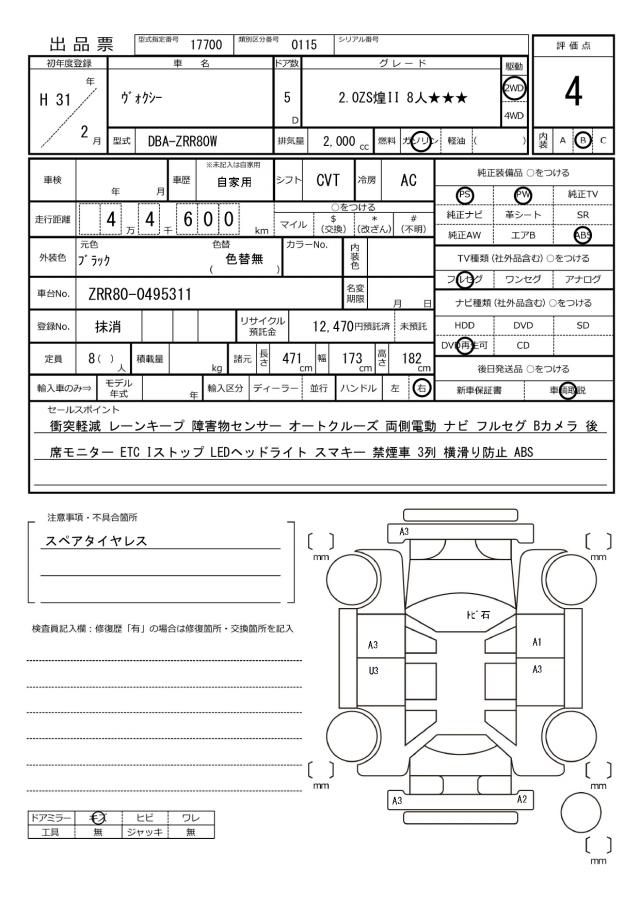 出品票 型式指定番号 17700 類別区分番号 0115 シリアル番号
評価点
4
初年度登録 車 名 ドア数 グレード 駆動
H 31 年 2 月 ヴォクシー 5 D 2.0ZS煌II 8人★★★ 2WD 4WD
型式 DBA-ZRR80W 排気量 2,000 cc 燃料 ガソリン 軽油 ( ) 内装 A B C
車検 年 月 車歴 ※未記入は自家用 自家用 シフト CVT 冷房 AC
走行距離 4 万 4 千 6 0 0 km ○をつける マイル $ (交換) * (改ざん) # (不明)
外装色 元色 ブラック 色替 ( 色替無 ) カラーNo. 内装色
車台No. ZRR80-0495311 名変期限 月 日
登録No. 抹消 リサイクル預託金 12,470円預託済 未預託
定員 8( ) 人 積載量 kg 諸元 長さ 471 cm 幅 173 cm 高さ 182 cm
輸入車のみ⇒ モデル年式 年 輸入区分 ディーラー 並行 ハンドル 左 右
純正装備品 ○をつける
PS PW 純正TV
純正ナビ 革シート SR
純正AW エアB ABS
TV種類 (社外品含む) ○をつける
フルセグ ワンセグ アナログ
ナビ種類 (社外品含む) ○をつける
HDD DVD SD
DVD再生可 CD
後日発送品 ○をつける
新車保証書 車輌取説
セールスポイント
衝突軽減 レーンキープ 障害物センサー オートクルーズ 両側電動 ナビ フルセグ Bカメラ 後
席モニター ETC Iストップ LEDヘッドライト スマキー 禁煙車 3列 横滑り防止 ABS
注意事項・不具合箇所
スペアタイヤレス
検査員記入欄：修復歴「有」の場合は修復箇所・交換箇所を記入
ドアミラー キズ ヒビ ワレ
工具 無 ジャッキ 無
A3
mm mm
トビ石
A3 A1
U3 A3
mm mm
A3 A2
mm